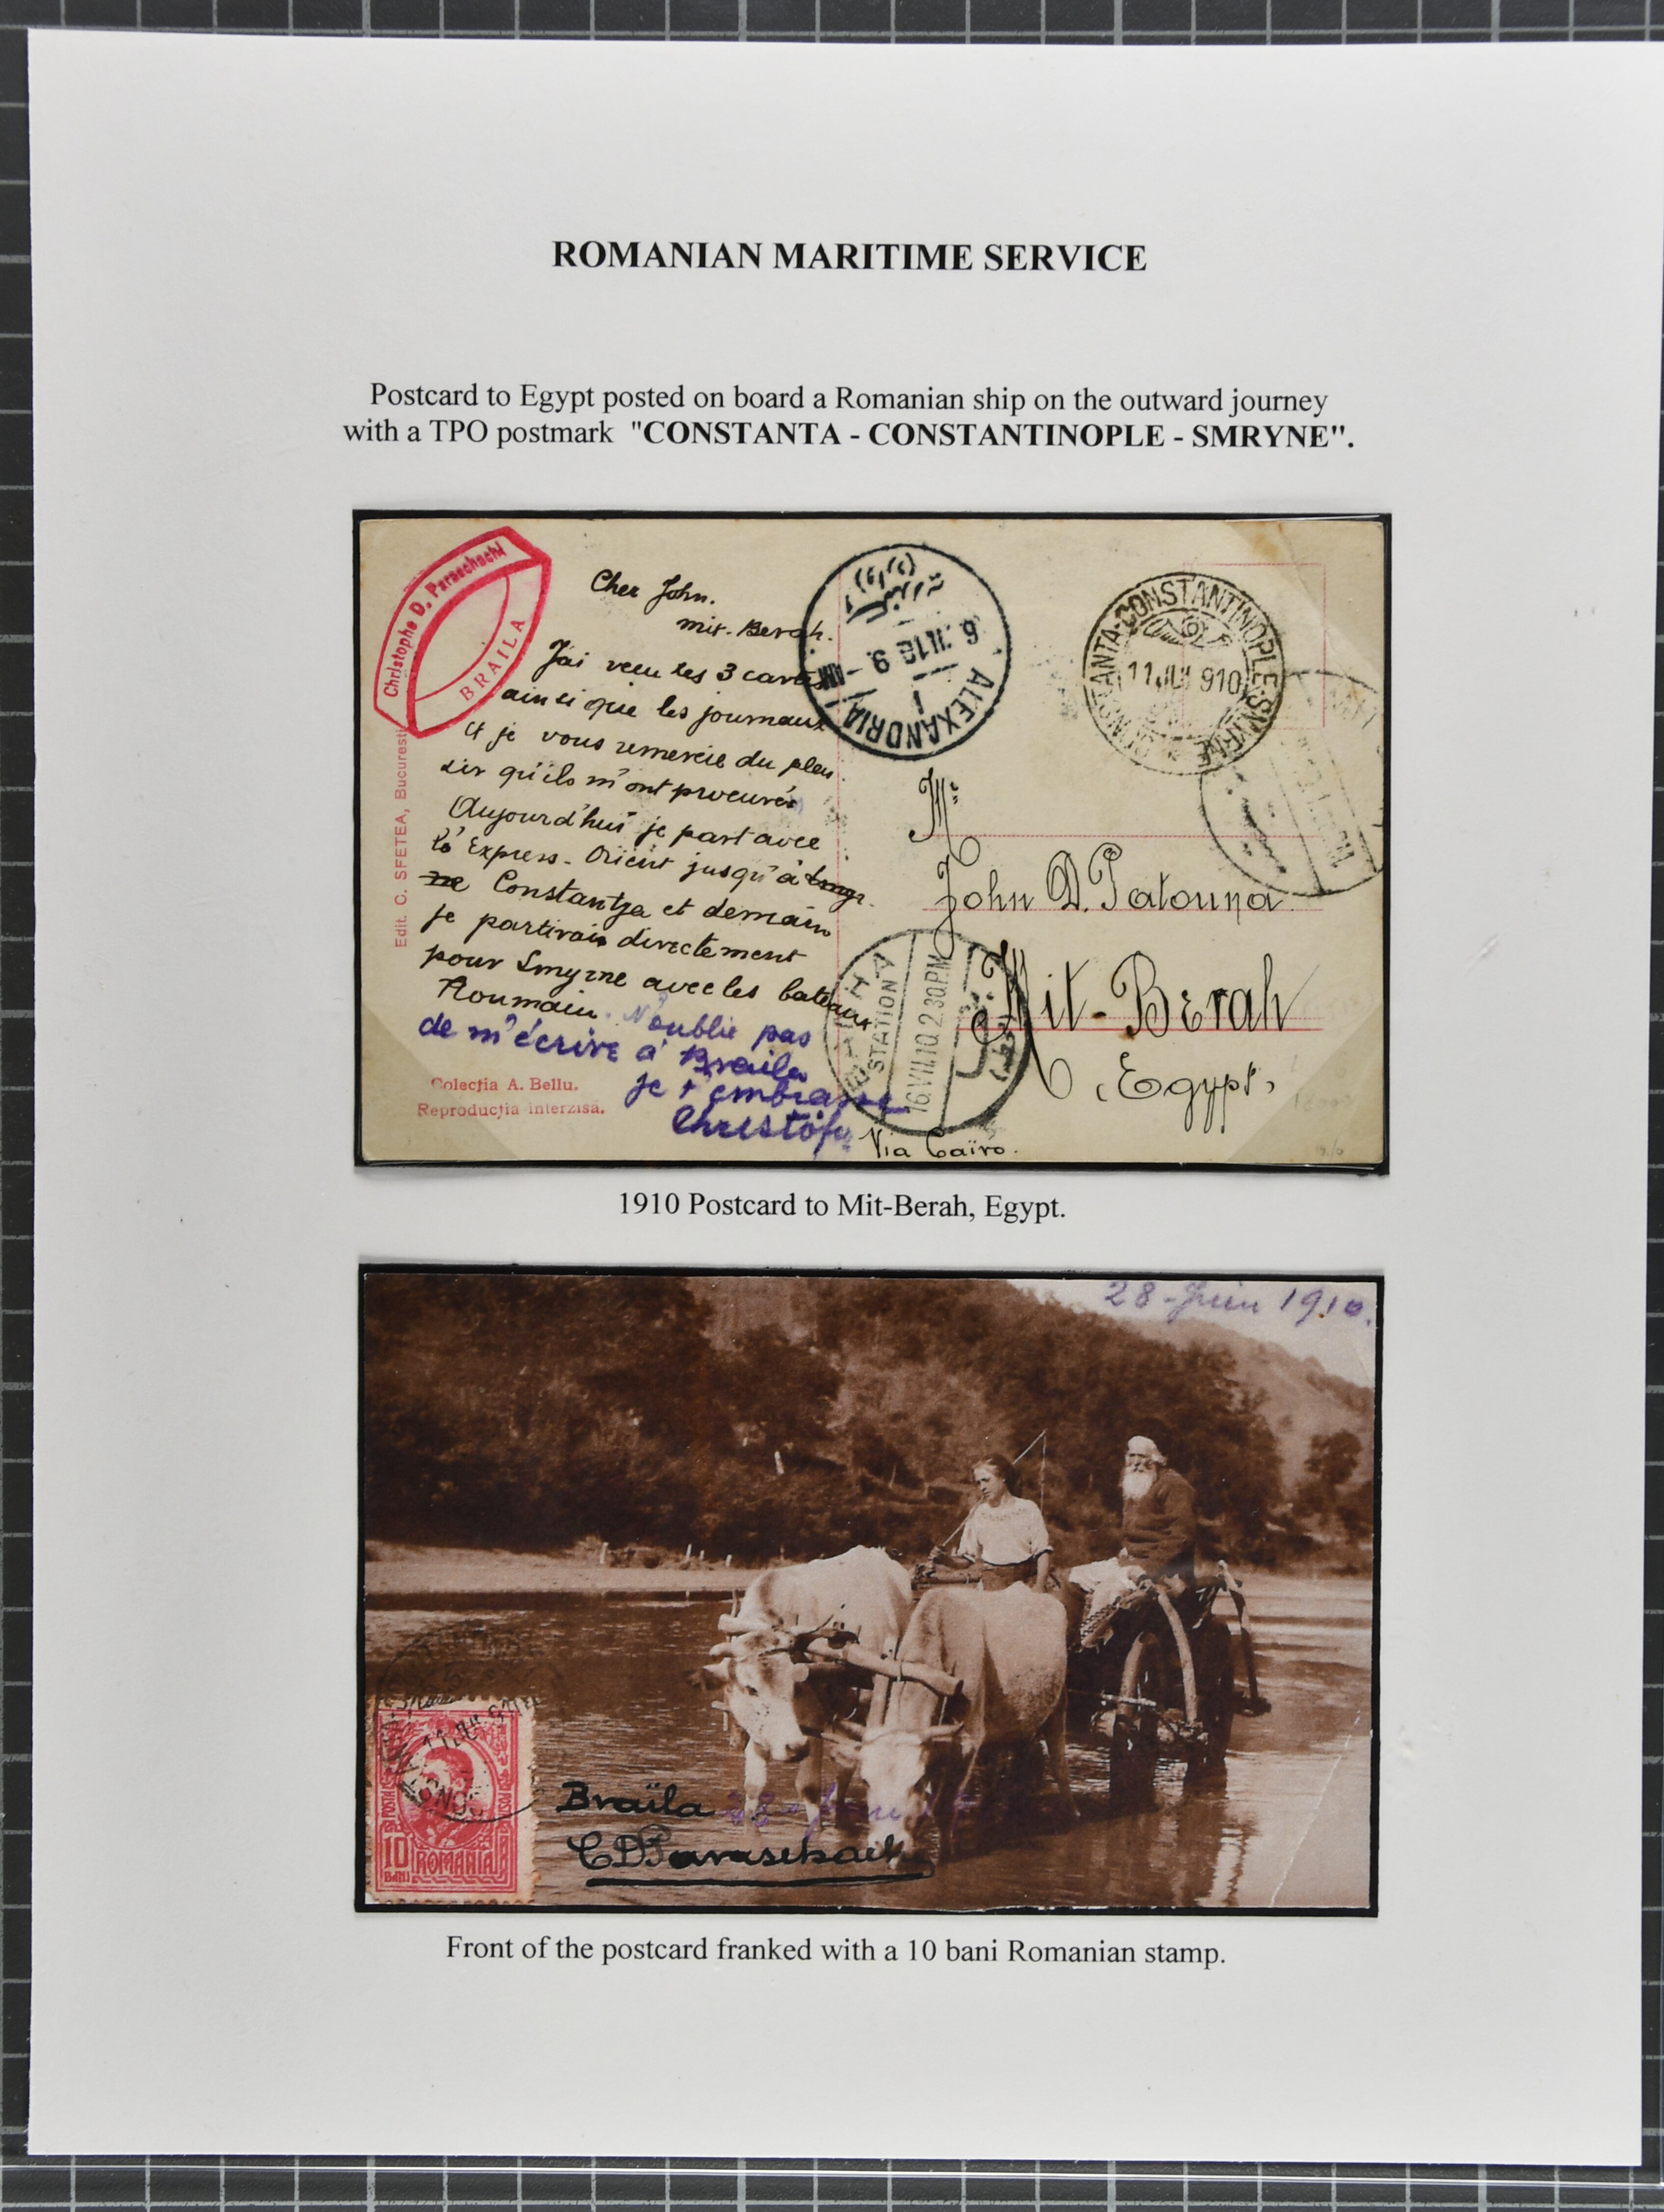 ROMANIAN MARITIME SERVICE
Postcard to Egypt posted on board a Romanian ship on the outward journey
with a TPO postmark "CONSTANTA - CONSTANTINOPLE - SMRYNE".
Christophe D. Paraschachi
BRAILA
Edit. C. SFETEA, Bucuresti
Cher John.
Mit-Berah.
J'ai recu tes 3 cartes
ainsi que les journaux
et je vous remercie du plai
sir qu'ils m'ont procurés
Aujourd'hui je part avec
l'Express-Orient jusqu'à
Constantza et demain
je partirais directement
pour Smyrne avec les bateaux
Roumain. N'oublie pas
de m'écrire à Braila
je t'embrasse
Christofe
Colecția A. Bellu.
Reproducția interzisă.
ALEXANDRIA
CONSTANTA-CONSTANTINOPLE-SMYRNE
11 JUL 910
Mr
John D. Patouna
Mit-Berah
(Egypt)
Via Caïro.
BENHA
STATION
16.VII.10.2.30.P.M
1910 Postcard to Mit-Berah, Egypt.
28-Juin 1910.
POSTA
POSTA
10
BANI
ROMANIA
Braïla 28-Juin
CDParaschachi
Front of the postcard franked with a 10 bani Romanian stamp.